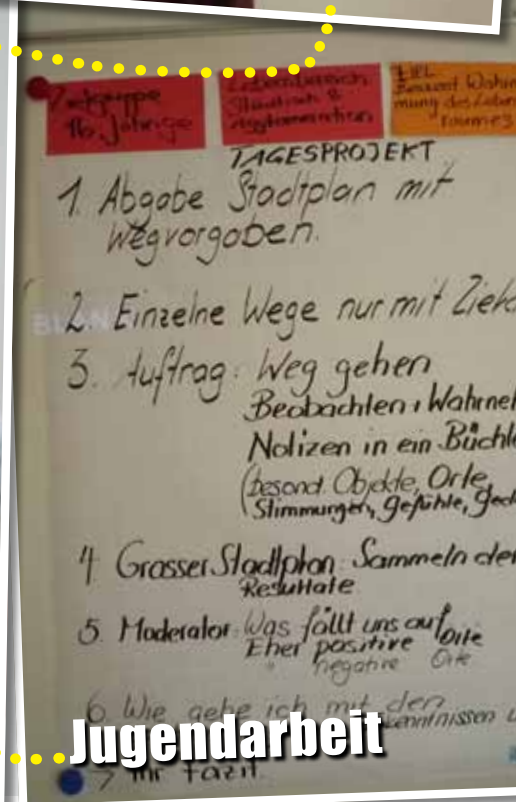 Zielgruppe
16. Jährige
Lebensbereich
Städtisch &
Agglomeration
ZIEL
Bewusst. Wahrn
mung des Leben
raumes
TAGESPROJEKT
1. Abgabe Stadtplan mit
Wegvorgaben.
2. Einzelne Wege nur mit Ziel
3. Auftrag: Weg gehen
Beobachten, Wahrneh
Notizen in ein Büchle
(besond. Objekte, Orte,
Stimmungen, Gefühle, Ged
4. Grosser Stadtplan: Sammeln der
Resultate
5. Moderator: Was fällt uns auf
Eher positive Orte
" negative Orte
6. Wie gehe ich mit den
kenntnissen
Jugendarbeit
> Ihr Fazit.